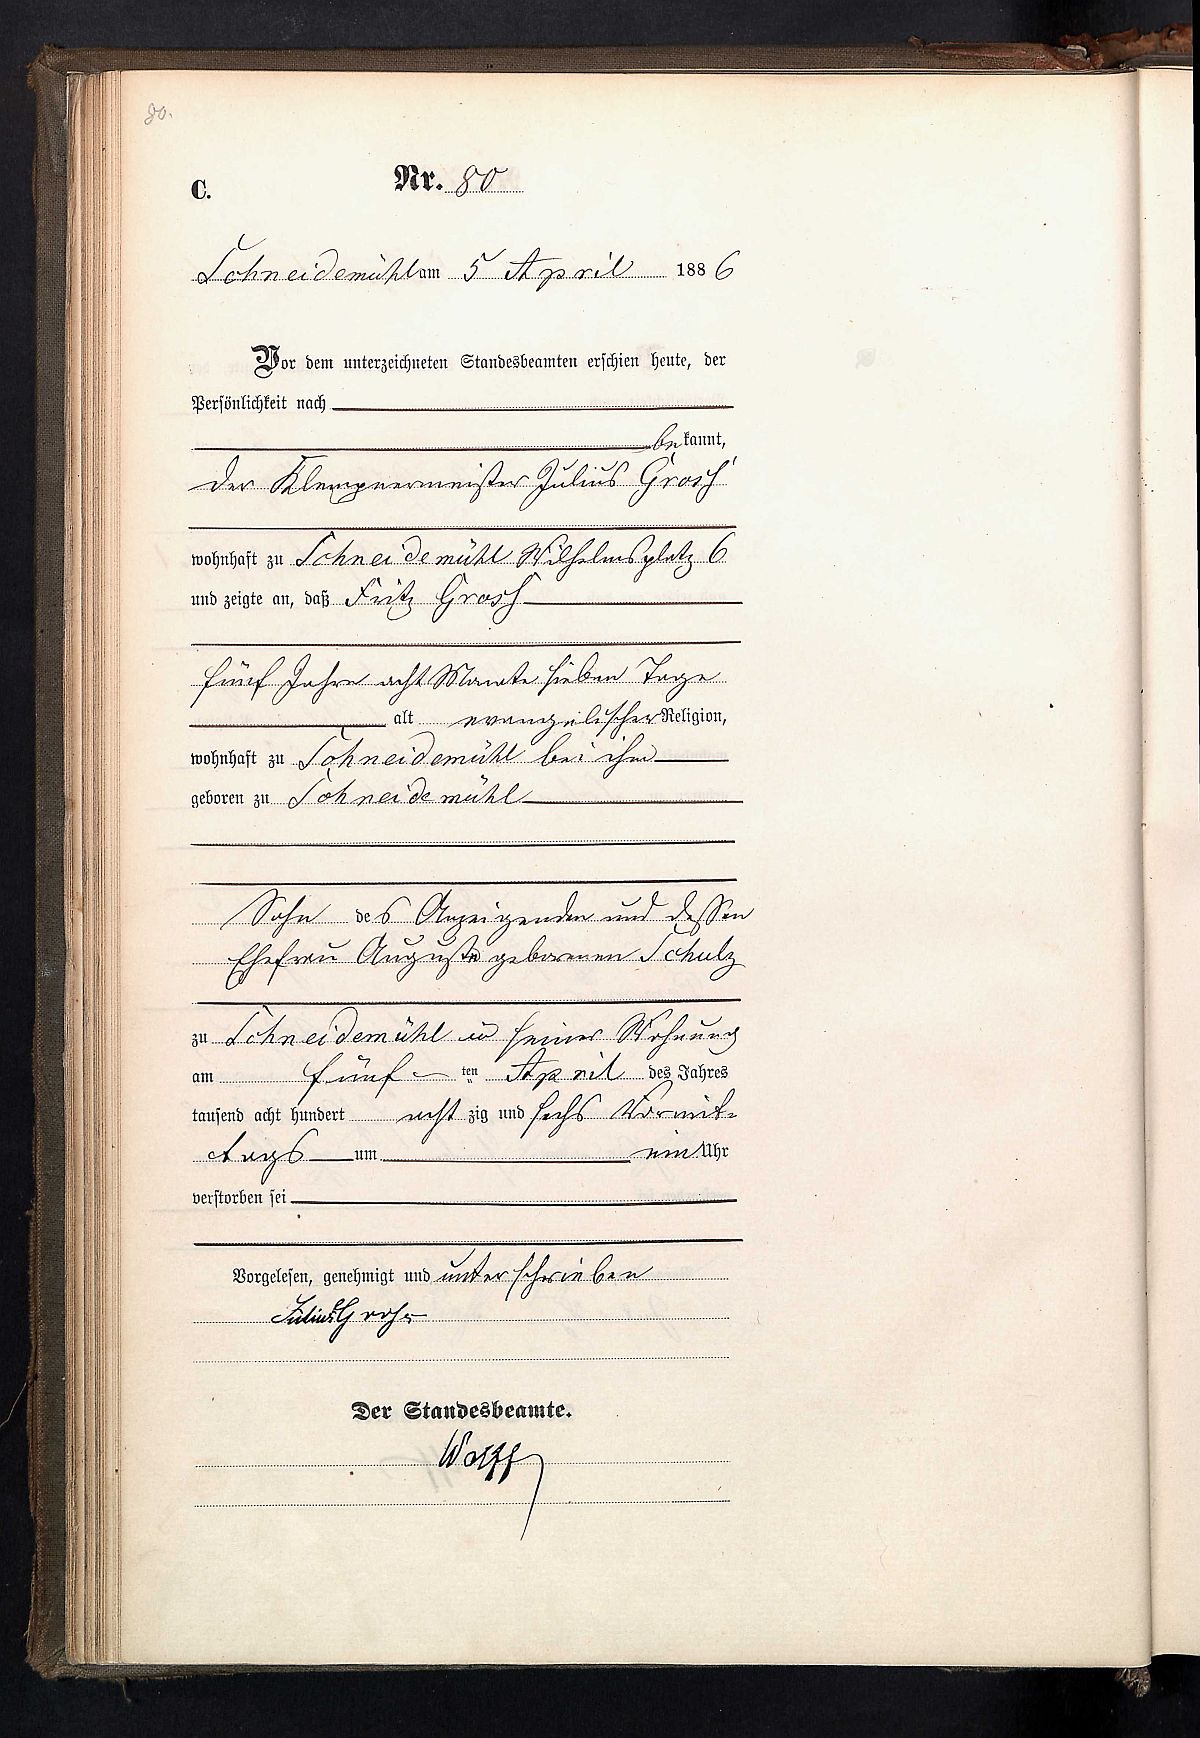 80.
C.
Nr. 80
Schneidemühl am 5 April 1886
Vor dem unterzeichneten Standesbeamten erschien heute, der
Persönlichkeit nach
bekannt,
der Klempnermeister Julius Grosch
wohnhaft zu Schneidemühl Wilhelmsplatz 6
und zeigte an, daß Fritz Grosch
fünf Jahre acht Monate sieben Tage
alt evangelischer Religion,
wohnhaft zu Schneidemühl bei ihm
geboren zu Schneidemühl
Sohn des Anzeigenden und dessen
Ehefrau Auguste geborenen Schulz
zu Schneidemühl in seiner Wohnung
am fünften April des Jahres
tausend acht hundert achtzig und sechs Vormit-
tags um ein Uhr
verstorben sei
Vorgelesen, genehmigt und unterschrieben
Julius
Der Standesbeamte.
Wolff